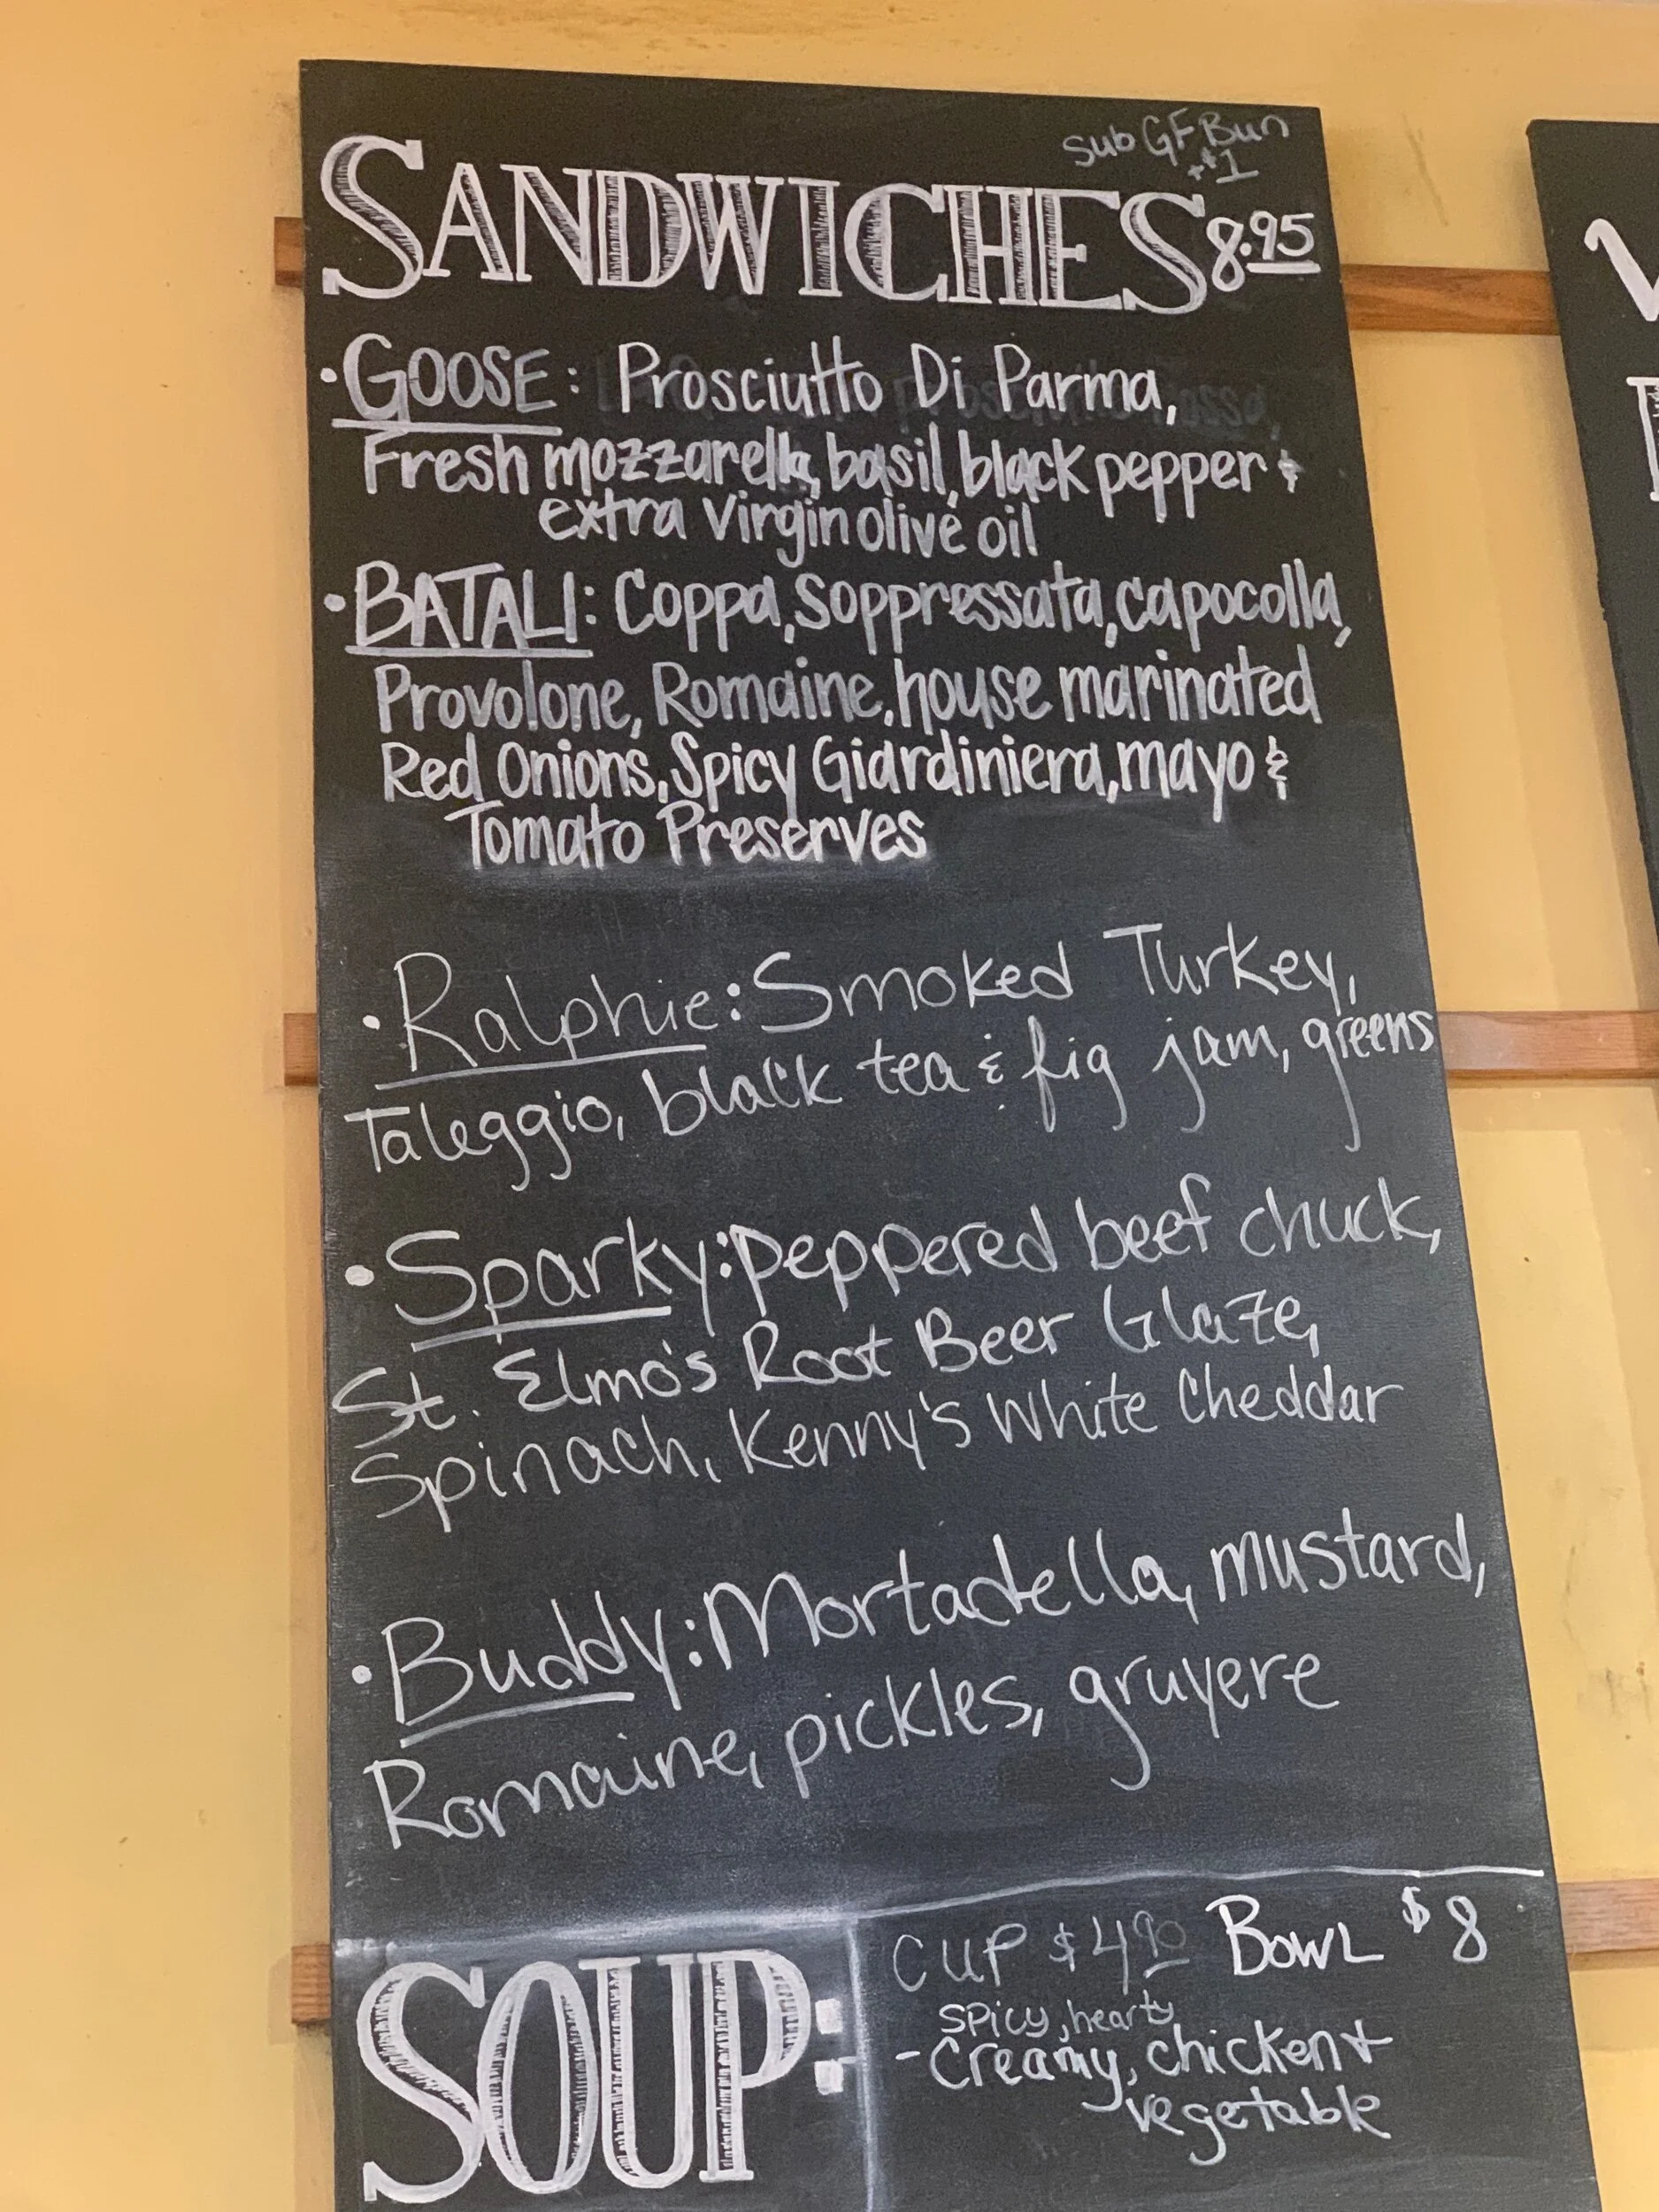 Sub GF Bun
+$1
SANDWICHES 8.95
• GOOSE: Prosciutto Di Parma,
Fresh mozzarella, basil, black pepper &
extra virgin olive oil
• BATALI: Coppa, Soppressata, capocolla,
Provolone, Romaine, house marinated
Red Onions, Spicy Giardiniera, mayo &
Tomato Preserves
• Ralphie: Smoked Turkey,
Taleggio, black tea & fig jam, greens
• Sparky: peppered beef chuck,
St. Elmo's Root Beer Glaze,
Spinach, Kenny's White Cheddar
• Buddy: Mortadella, mustard,
Romaine, pickles, gruyere
SOUP:
CUP $4.90 BOWL $8
spicy, hearty
- Creamy, chicken +
vegetable